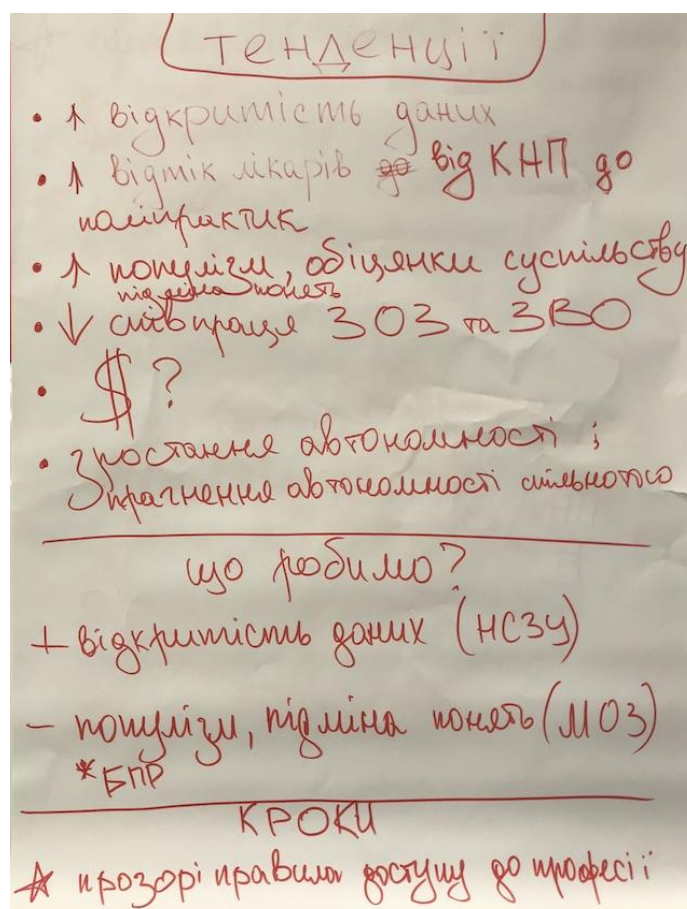 тенденції
• ↑ відкритість даних
• ↑ відтік лікарів ~~до~~ від КНП до
поліпрактик
• ↑ популізм, обіцянки суспільству
підміна понять
• ↓ співпраця ЗОЗ та ЗВО
• $ ?
• Зростання автономності і
прагнення автономності спільнотою
що робимо?
+ відкритість даних (НСЗУ)
– популізм, підміна понять (МОЗ)
*БПР
КРОКИ
☆ прозорі правила доступу до професії